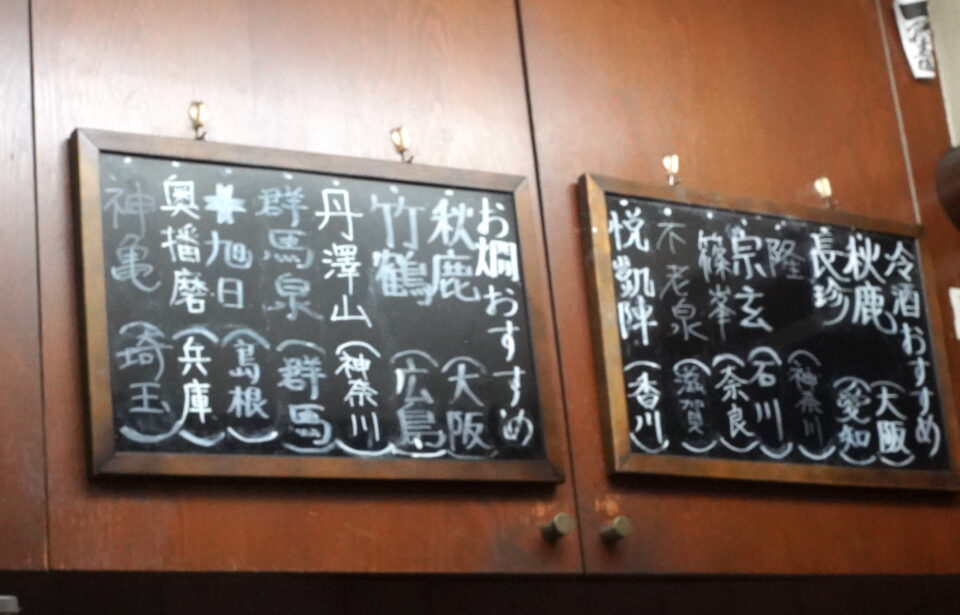 お燗おすすめ
秋鹿(大阪)
竹鶴(広島)
丹澤山(神奈川)
群馬泉(群馬)
旭日(島根)
奥播磨(兵庫)
神亀(埼玉)
冷酒おすすめ
秋鹿(大阪)
長珍(愛知)
隆(神奈川)
宗玄(石川)
篠峯(奈良)
不老泉(滋賀)
悦凱陣(香川)